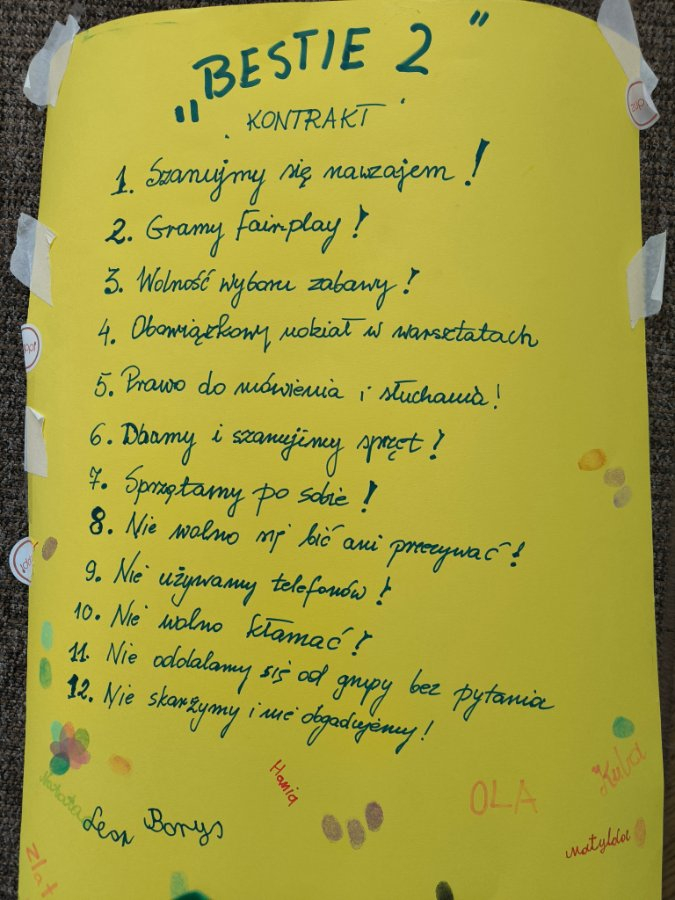 „BESTIE 2"
KONTRAKT
1. Szanujmy się nawzajem!
2. Gramy Fair-play!
3. Wolność wyboru zabawy!
4. Obowiązkowy udział w warsztatach
5. Prawo do mówienia i słuchania!
6. Dbamy i szanujmy sprzęt!
7. Sprzętamy po sobie!
8. Nie wolno się bić ani przezywać!
9. Nie używamy telefonów!
10. Nie wolno kłamać!
11. Nie oddalamy się od grupy bez pytania
12. Nie skarżymy i nie obgadujemy!
Hania
OLA
Kuba
Leon
Borys
Matylda
zlat